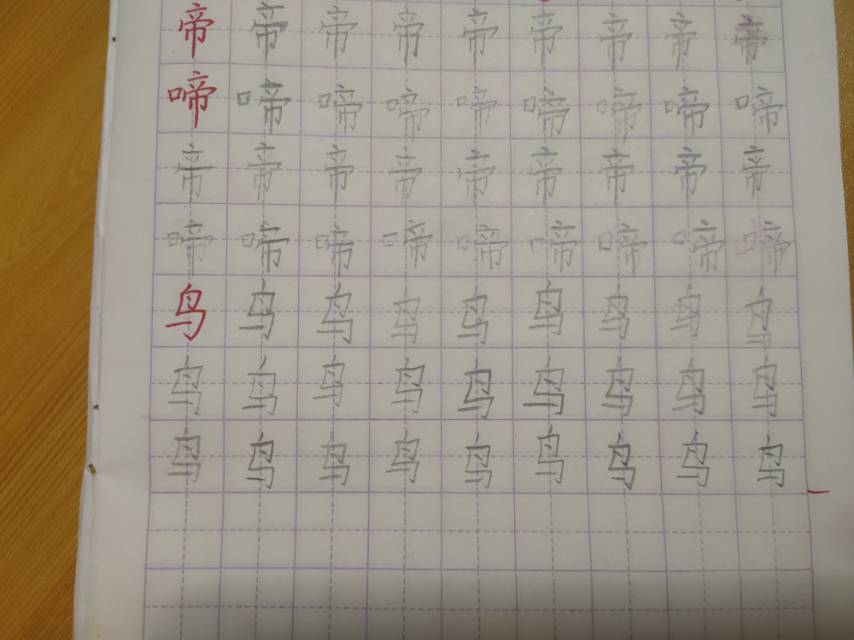 帝帝帝帝帝帝帝帝帝
啼啼啼啼啼啼啼啼啼
帝帝帝帝帝帝帝帝帝
啼啼啼啼啼啼啼啼啼
鸟鸟鸟鸟鸟鸟鸟鸟鸟
鸟鸟鸟鸟鸟鸟鸟鸟鸟
鸟鸟鸟鸟鸟鸟鸟鸟鸟